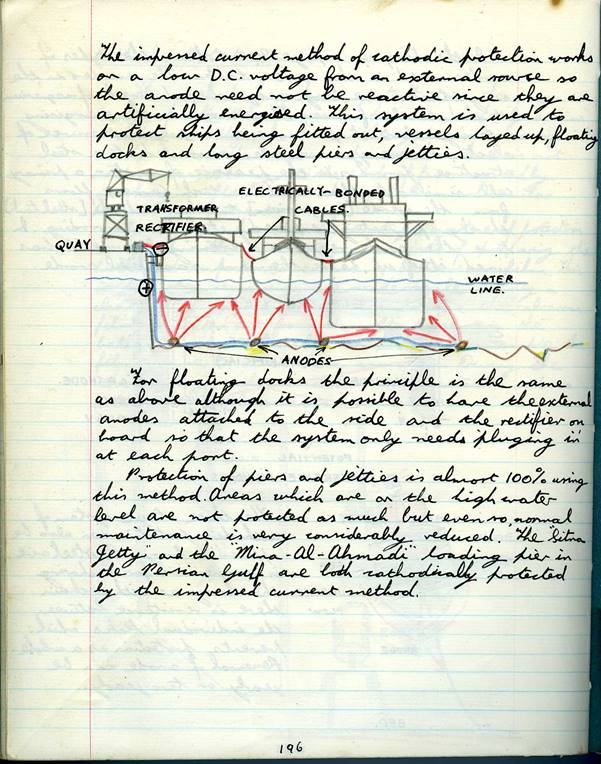 The impressed current method of cathodic protection works
on a low D.C. voltage from an external source so
the anode need not be reactive since they are
artificially energised. This system is used to
protect ships being fitted out, vessels layed up, floating
docks and long steel piers and jetties.
ELECTRICALLY-BONDED
CABLES.
TRANSFORMER
RECTIFIER.
QUAY
−
+
WATER
LINE.
ANODES
For floating docks the principle is the same
as above although it is possible to have the external
anodes attached to the side and the rectifier on
board so that the system only needs "pluging in"
at each port.
Protection of piers and Jetties is almost 100% using
this method. Areas which are on the high water
level are not protected as much but even so, normal
maintenance is very considerably reduced. The "Sitra
Jetty" and the "Mina-Al-Ahmadi" loading pier in
the Persian Gulf are both cathodically protected
by the impressed current method.
196